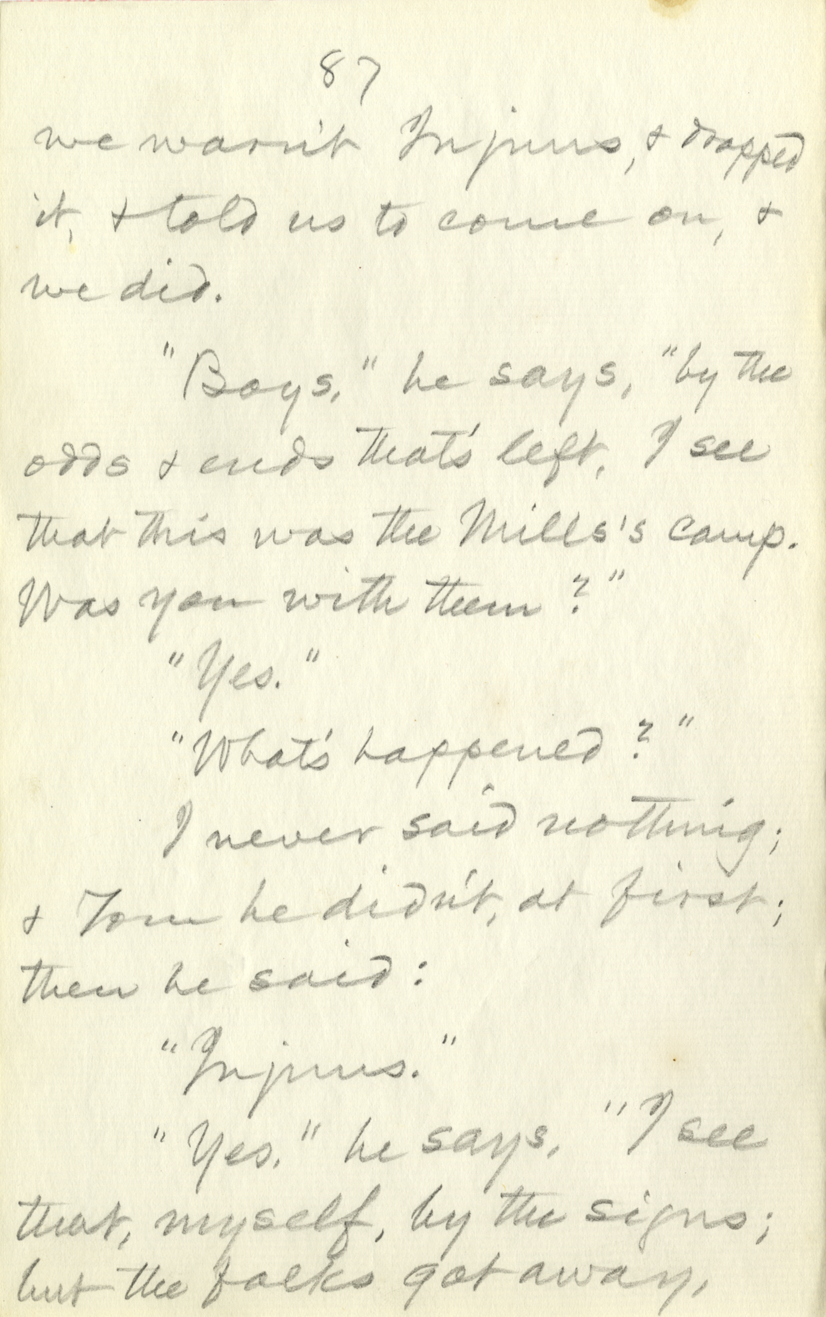 87
we warn't Injuns, & dropped
it, & told us to come on, &
we did.
"Boys," he says, "by the
odds & ends that's left, I see
that this was the Mills's camp.
Was you with them?"
"Yes."
"What's happened?"
I never said nothing;
& Tom he didn't, at first;
then he said:
"Injuns."
"Yes," he says, "I see
that, myself, by the signs;
but the folks got away,